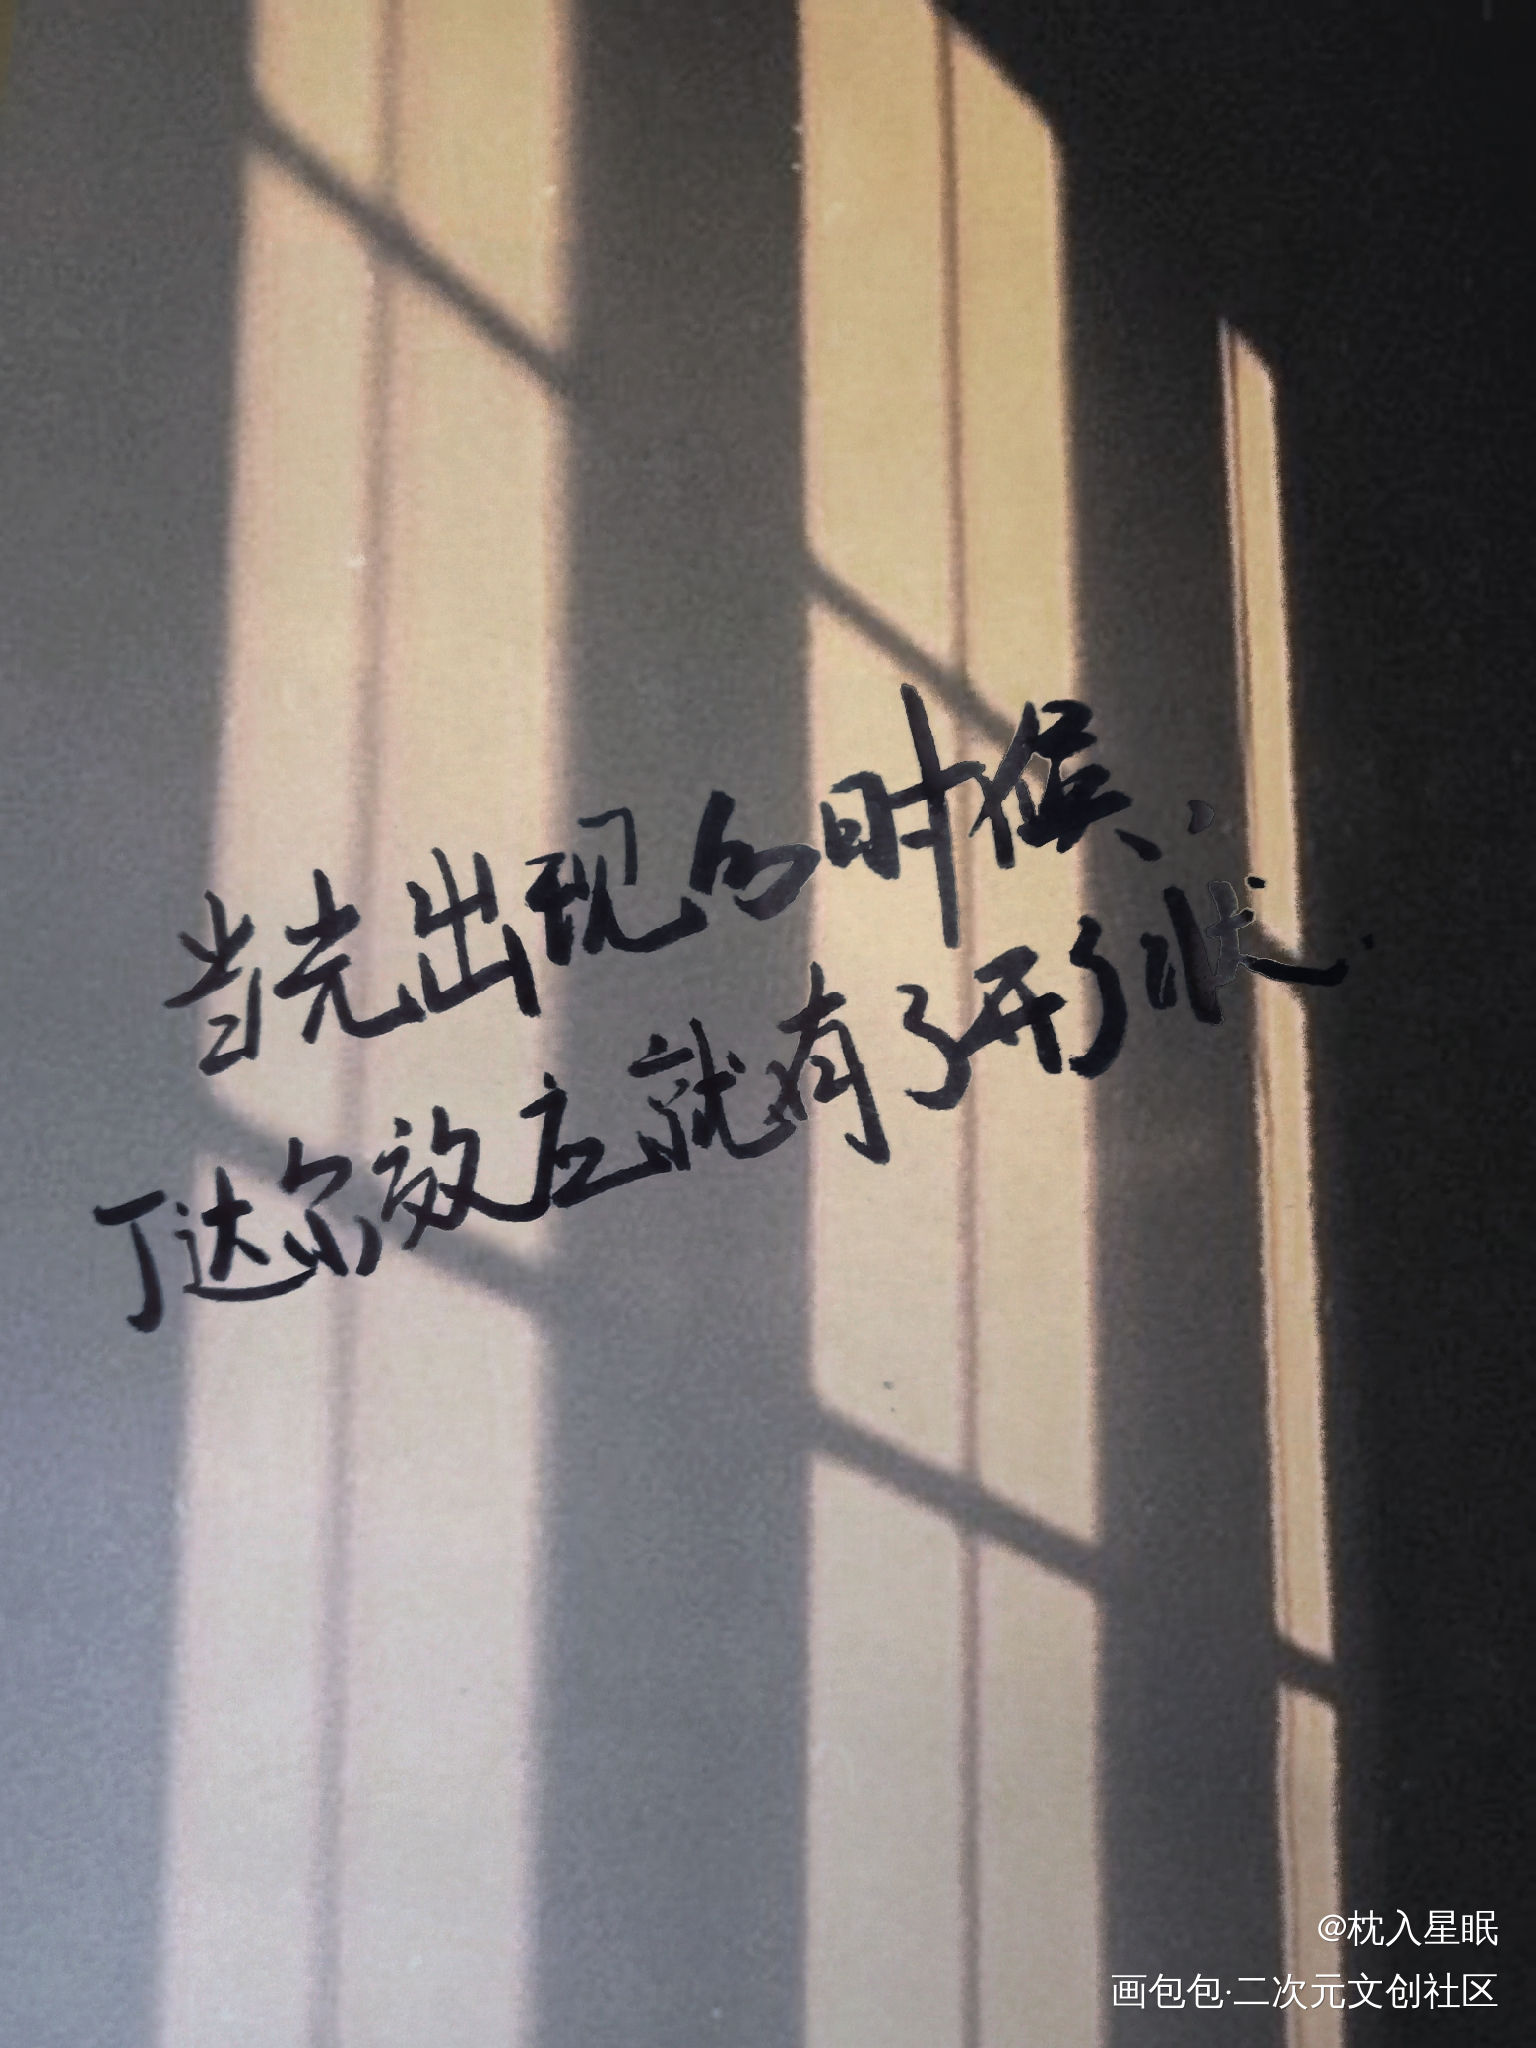 当光出现的时候、
丁达尔效应就有了形状.
@枕入星眠
画包包·二次元文创社区